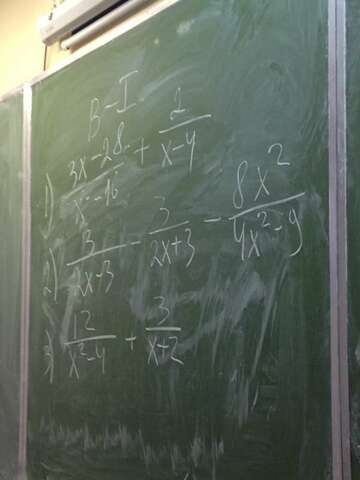 B-I
1) \frac{3x-28}{x^2-16} + \frac{2}{x-4}
2) \frac{3}{2x-3} - \frac{3}{2x+3} - \frac{8x^2}{4x^2-9}
3) \frac{12}{x^2-4} + \frac{3}{x+2}